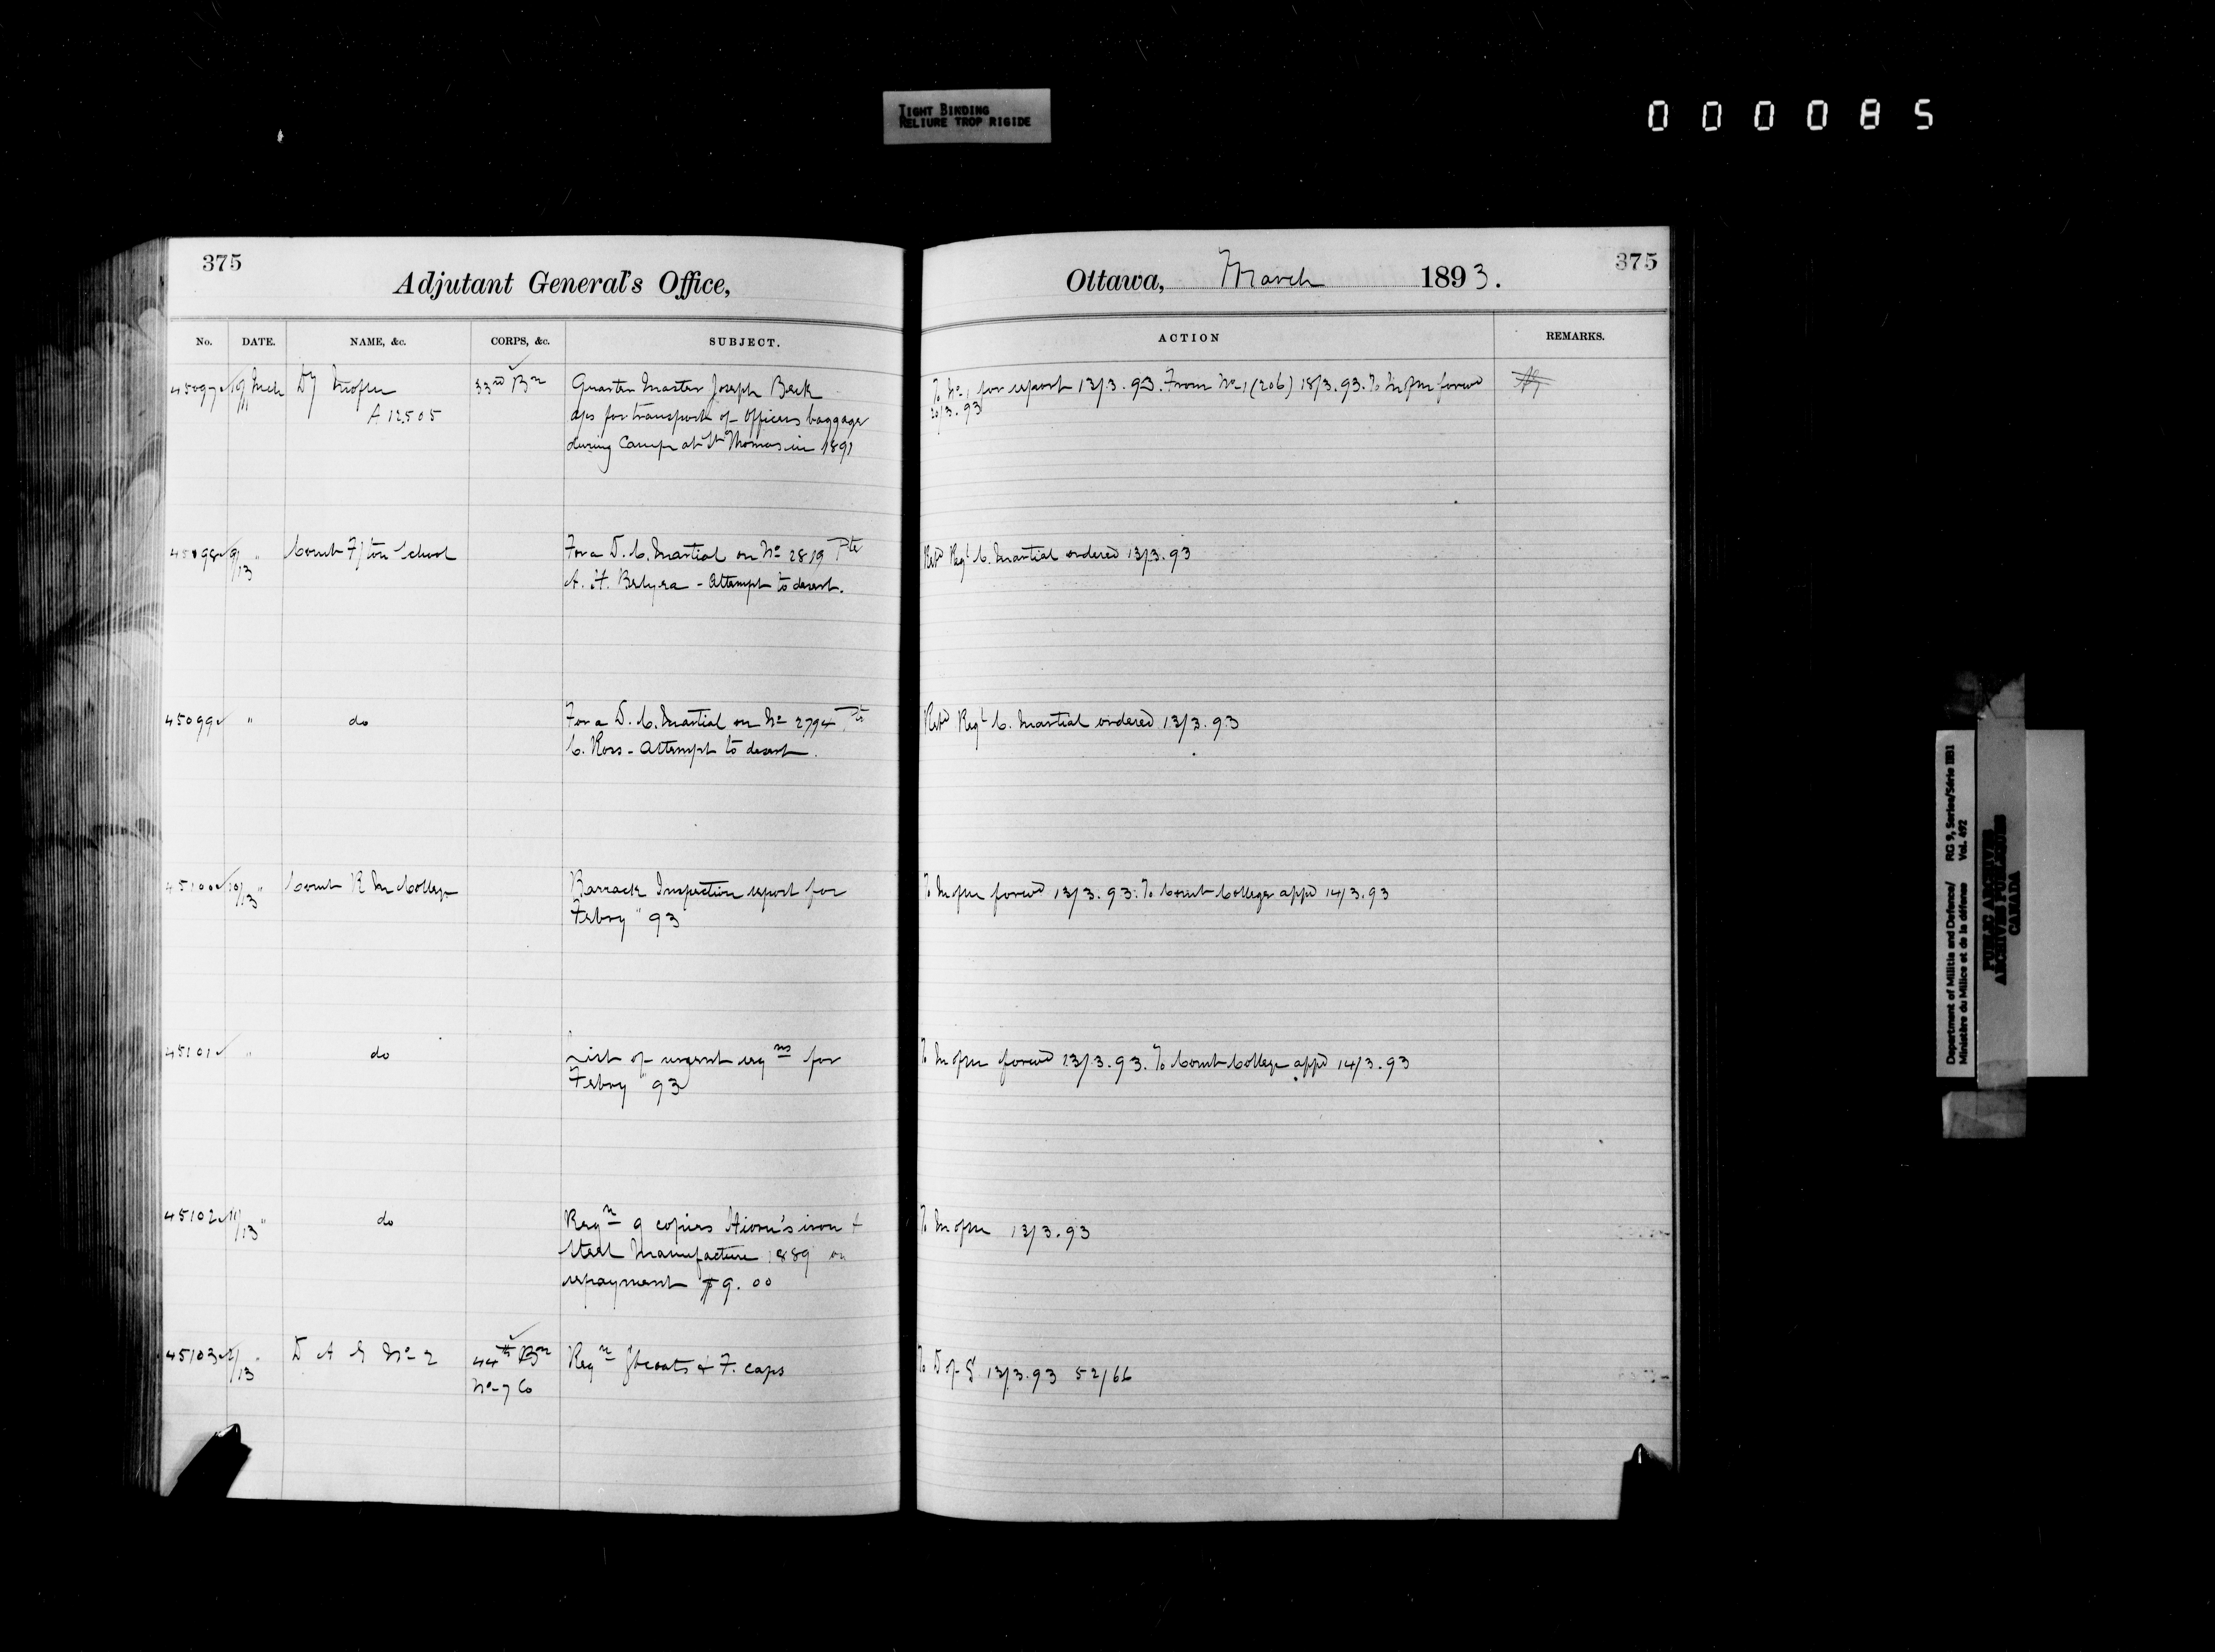 TIGHT BINDING
RELIURE TROP RIGIDE
000085
375
Adjutant General's Office,
No. DATE. NAME, &c. CORPS, &c. SUBJECT.
45097 Dy Mofm 33rd Bn Quarter Master Joseph Beck
A 12505 aps for transport of Officers baggage
during Camp at St Thomas in 1891
45098 9/13 " Comt F/ton School For a D. C. Martial on No 2819 Pte
A. H. - Attempt to desert.
45099 " do For a D. C. Martial on No 2794 Pte
C. Ross - Attempt to desert.
45100 10/13 " Comt R M College Barrack Inspection report for
Febry " 93
45101 " do List of urgent reqns for
Febry " 93
45102 11/13 " do Reqn 9 copies iron &
Steel Manufacture 1889 on
repayment $9.00
45103 /13 " D A G No 2 44th Bn Reqn Gtcoats & F. caps
No 7 Co
375
Ottawa, March 1893.
ACTION REMARKS.
To No 1 for report 13/3.93. From No 1 (206) 18/3.93. To Mofm forwd
20/3.93
Retd Regl C. Martial ordered 13/3.93
Retd Regl C. Martial ordered 13/3.93
To Mofm forwd 13/3.93. To Comt College appd 14/3.93
To Mofm forwd 13/3.93. To Comt College appd 14/3.93
To Mofm 13/3.93
To D of S 13/3.93 52/66
Department of Militia and Defence/ RG 9, Series/Série IIB1
Ministère du Milice et de la défense Vol. 692
PUBLIC ARCHIVES
ARCHIVES PUBLIQUES
CANADA